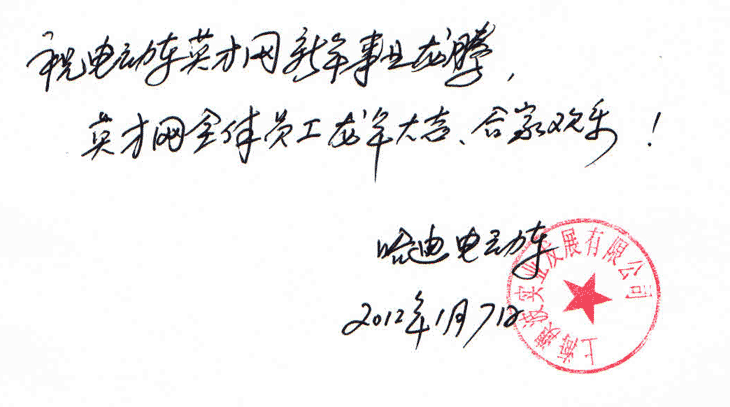 祝电动车英才网新年事业龙腾,
英才网全体员工龙年大志、合家欢乐!
哈迪电动车
2012年1月7日
上海 波实业发展有限公司